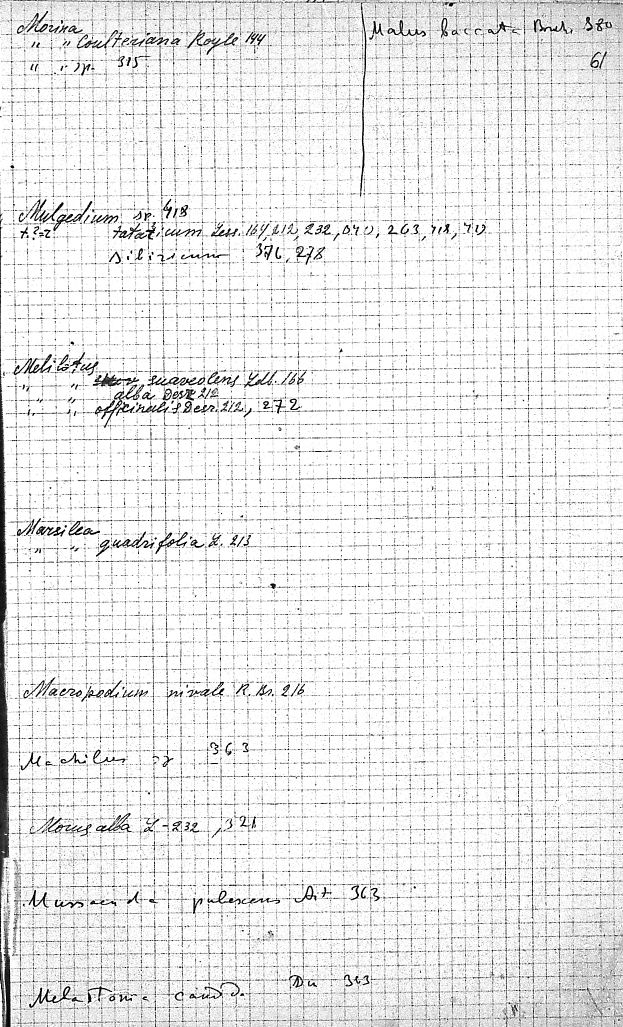 Morina
" " Coulteriana Royle 144
" " sp. 315
Malus baccata Borkh. 380
61
Mulgedium sp. 418
tataricum Less. 164, 212, 232, 263, 418,
sibiricum 376, 278
Melilotus
" " suaveolens Ldb. 166
" " alba Desr. 212
" " officinalis Desr. 212, 272
Marsilea
" " quadrifolia L. 213
Macropodium nivale R. Br. 216
Machilus sp 363
Morus alba L - 232, 321
Mussaenda pubescens Ait 363
Melastoma candid. Dn 363